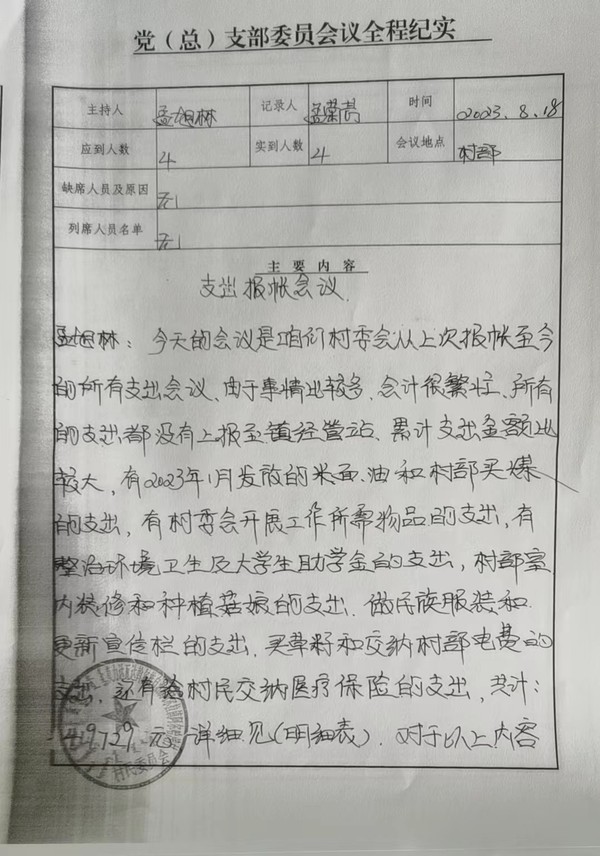 党（总）支部委员会议全程纪实
主持人 孟旭林 记录人 孟繁 时间 2023.8.18
应到人数 4 实到人数 4 会议地点 村部
缺席人员及原因 无
列席人员名单 无
主要内容
支出报帐会议.
孟旭林：今天的会议是咱们村委会从上次报帐至今
的所有支出会议、由于事情比较多、会计很繁忙、所有
的支出都没有上报至镇经管站、累计支出金额比
较大，有2023年1月发放的米面.油和村部买煤
的支出，有村委会开展工作所需物品的支出，有
整治环境卫生及大学生助学金的支出，村部室
内装修和种植菇娘的支出.做民族服装和
更新宣传栏的支出.买草籽和交纳村部电费的
支出、还有给村民交纳医疗保险的支出，共计：
49729元.详细见(明细表).对于以上内容
村民委员会